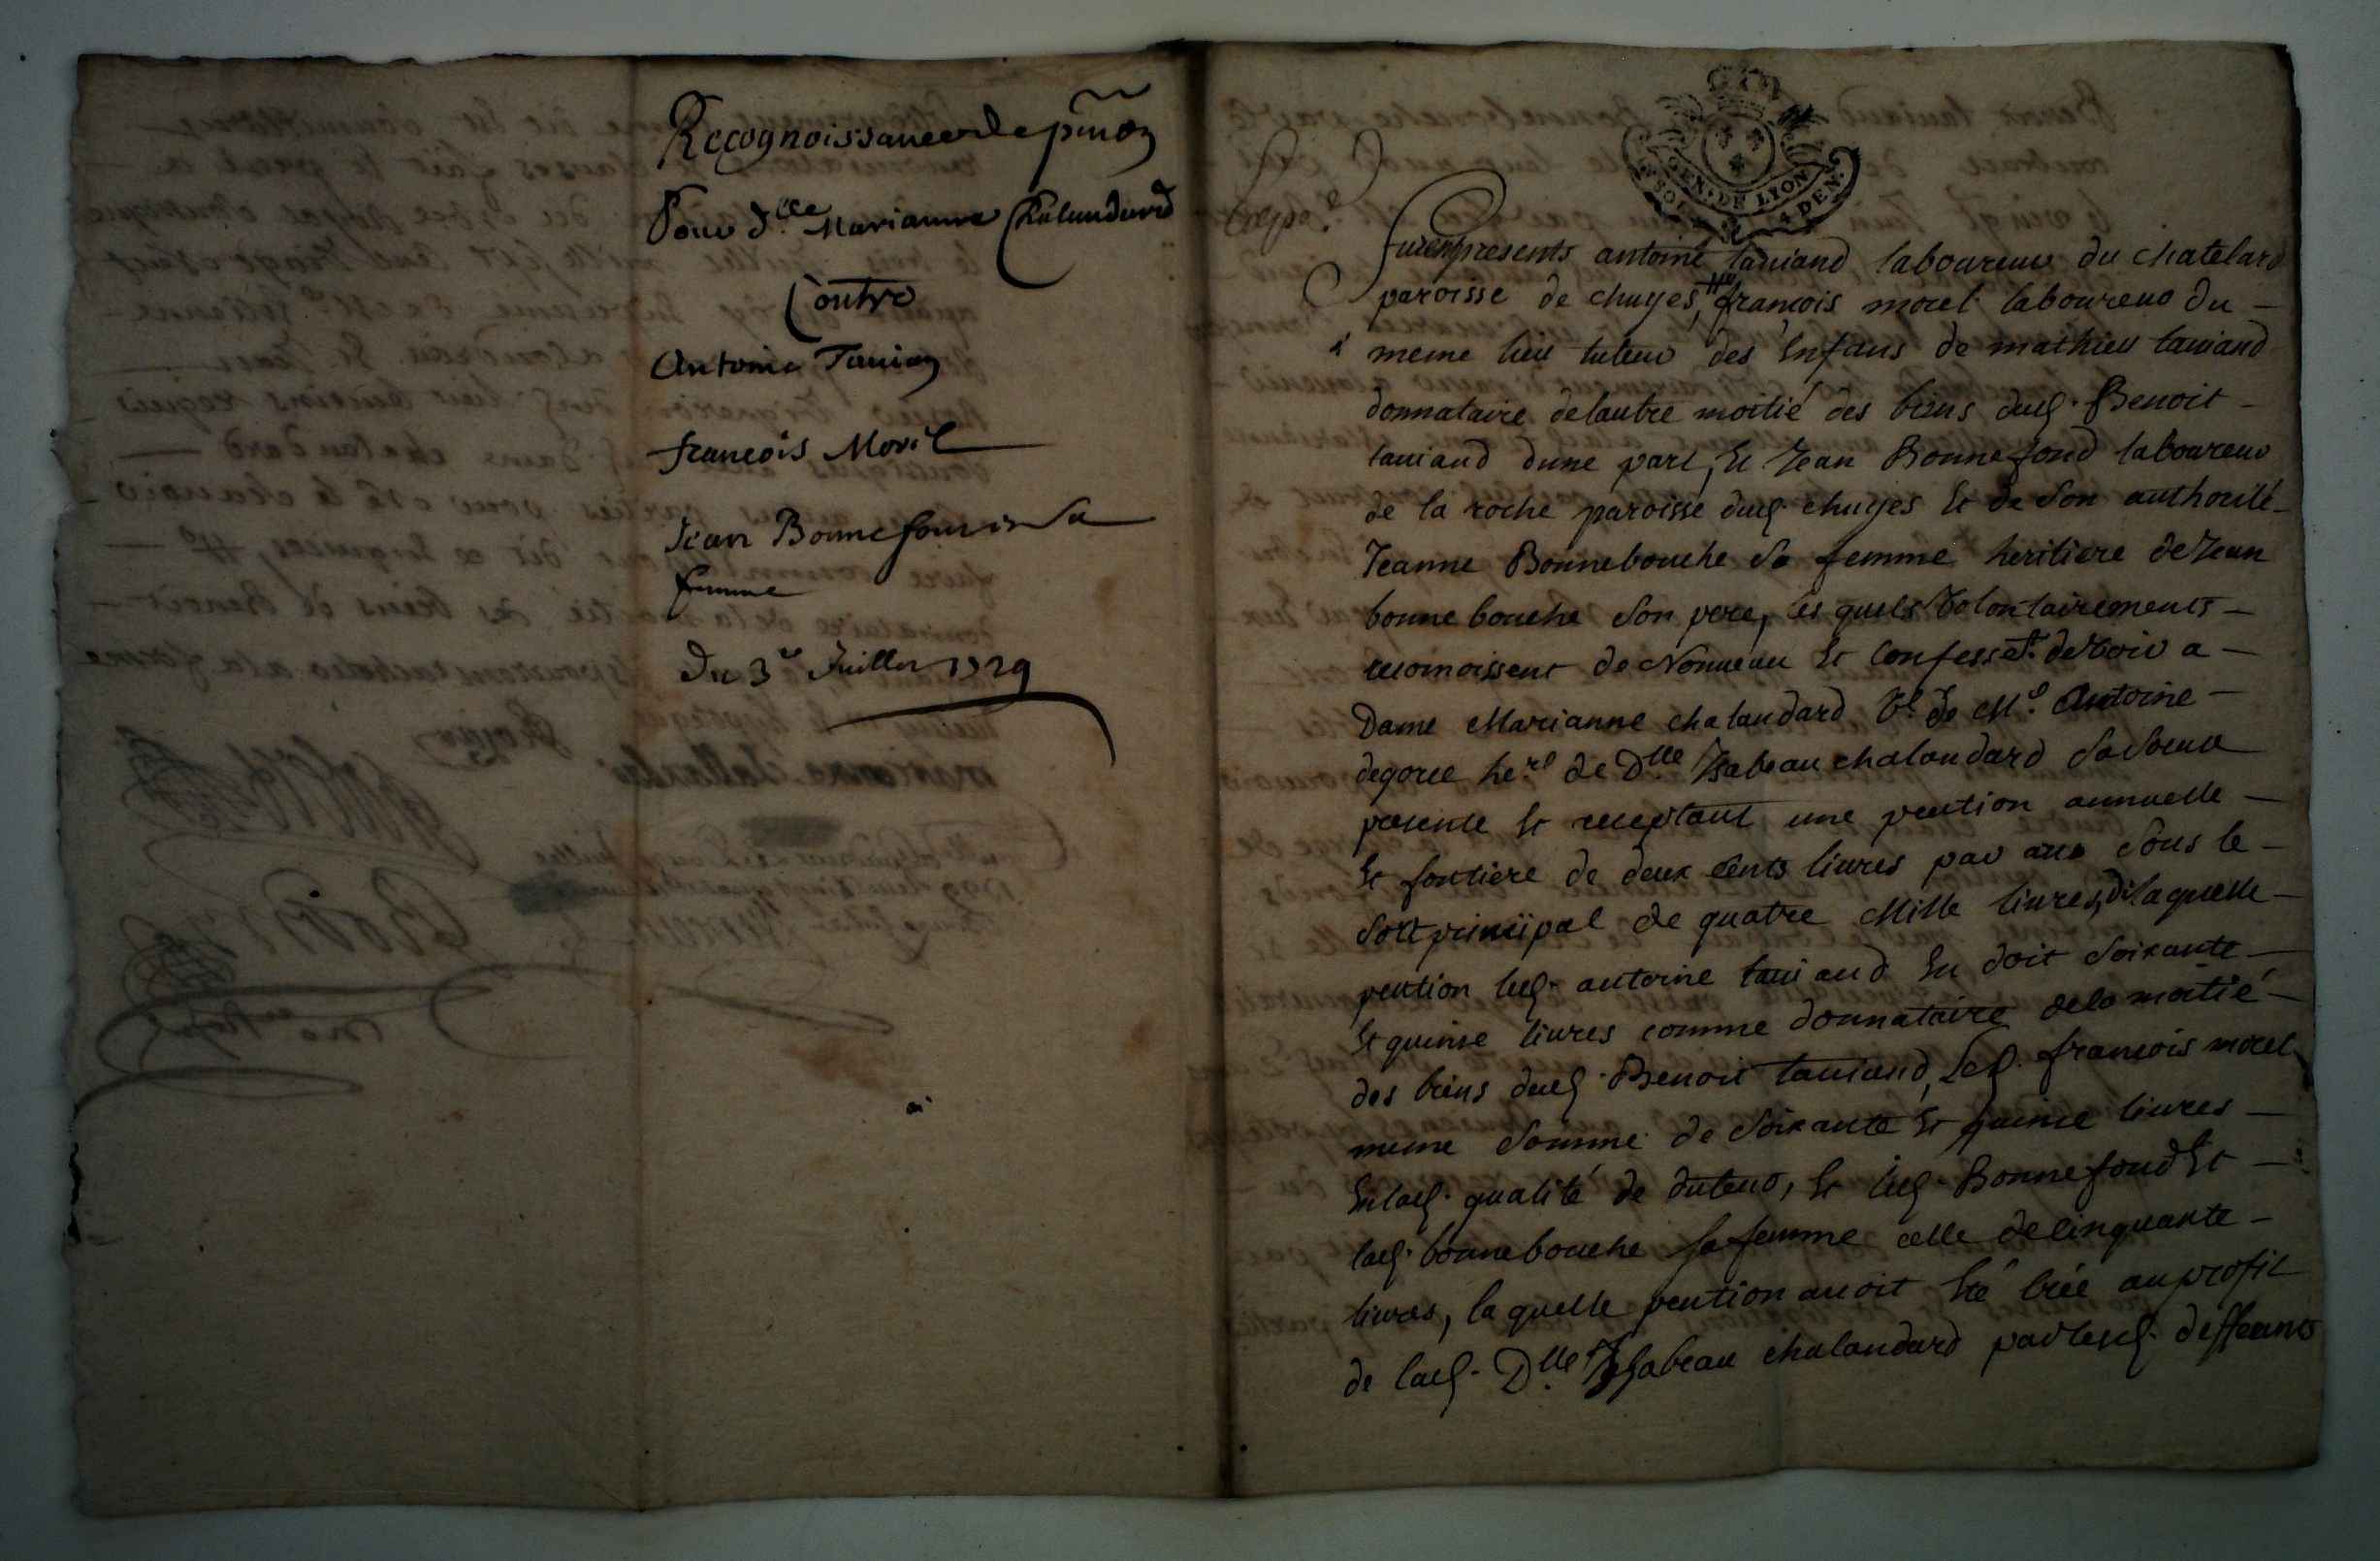 Recognoissance de p̃nõn
Pour d.lle Marianne Chalandard
Contre
Antoine Tauian
francois Morel
Jean Bonnefon et sa
femme
Du 3e Juillet 1729
GEN. DE LYON
SOL. 4 DEN.
Expé.
furent presents antoine tauiand laboureur du chatelard
paroisse de chuyes, francois morel laboureur du
meme lieu tuteur des Enfans de mathieu tauiand
donnataire delautre moitié des biens dud. Benoit
tauiand dune part, Et Jean Bonnefond laboureur
de la roche paroisse dud. chuyes Et de Son authorité
Jeanne Bonnebouche Sa femme heritiere de Jean
bonnebouche Son pere, les quels Volontairements
reconnoissent de Nouueau Et Confesst. deVoir a
Dame Marianne chalandard Ve. de Me. Antoine
degorce here. de Dlle Isabeau chalandard Sa Soeur
presente Et acceptant une pention annuelle
Et fontiere de deux Cents liures par an Sous le
Sort principal de quatre Mille liures, de laquelle
pention led. antoine tauiand En doit Soixante
Et quinse liures comme donnataire dela moitié
des biens dud. Benoit tauiand, Led. francois morel
meme Somme de Soixante Et quinse liures
En lad. qualité de tuteur, Et led. Bonnefond Et
lad. bonnebouche Sa femme celle de Cinquante
liures, la quelle pention auoit Eté Créé au profit
de lad. Dlle Isabeau chalandard par lesd. deffeunts